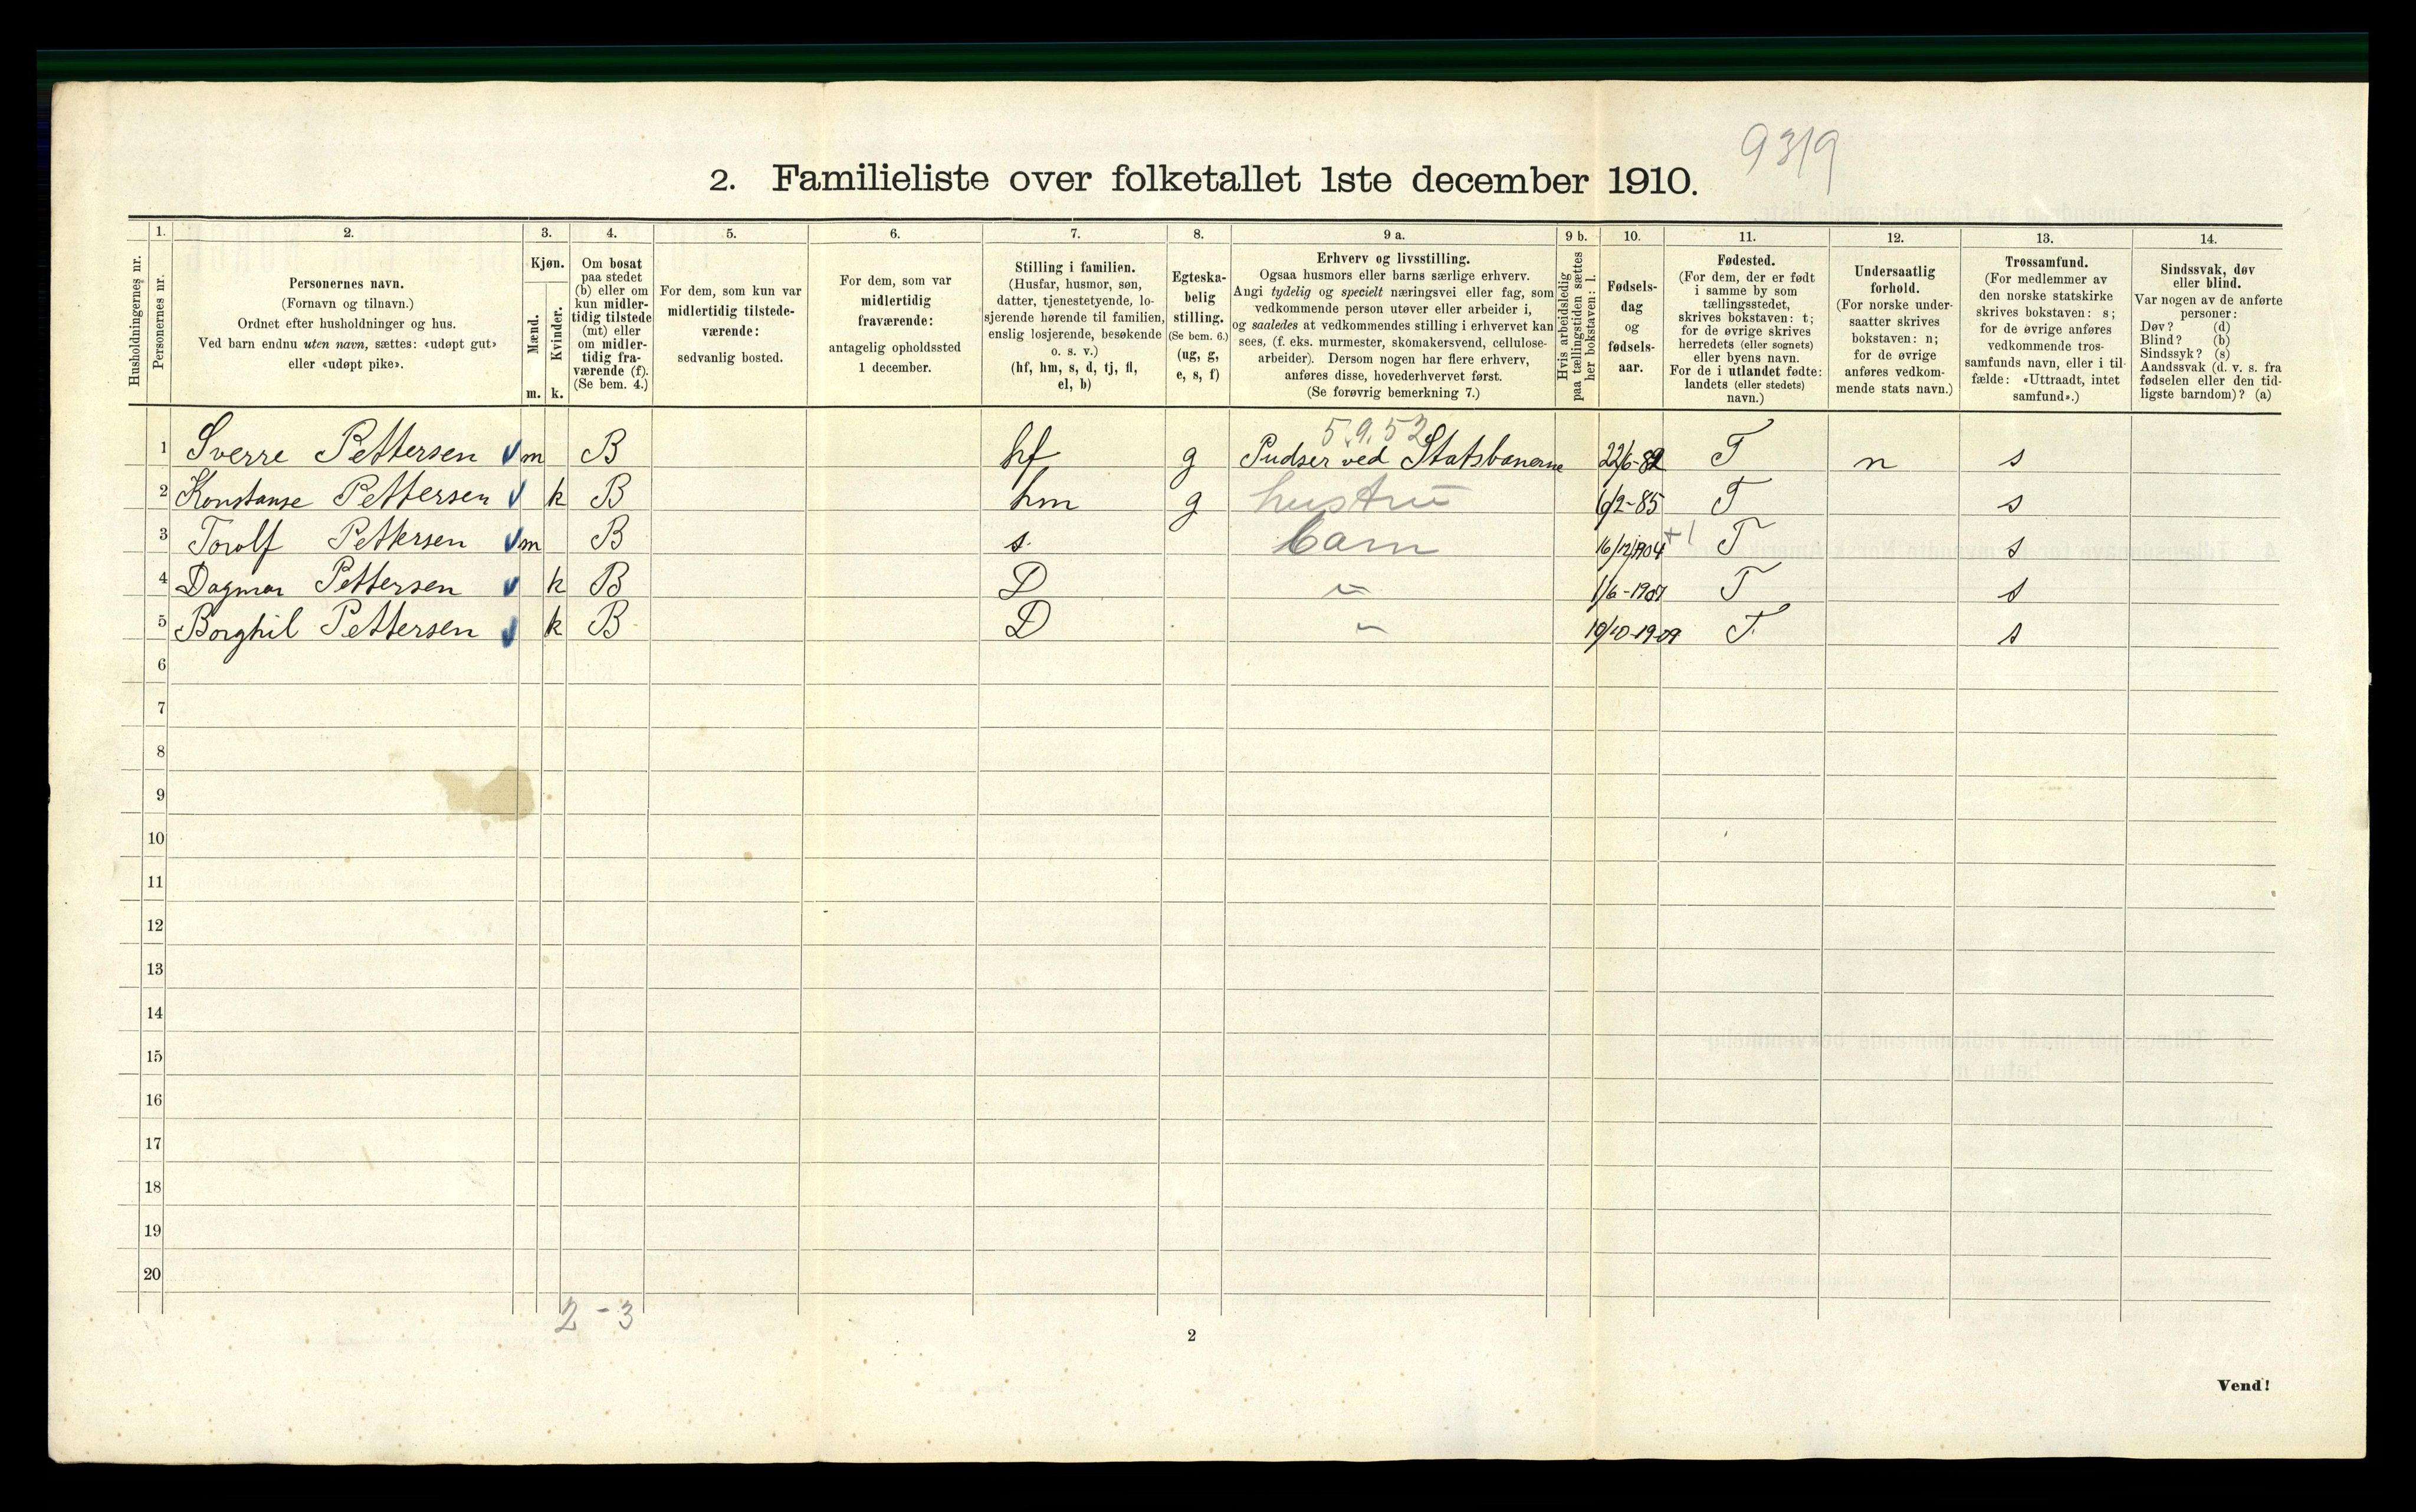 9319
2. Familieliste over folketallet 1ste december 1910.
Husholdningernes nr.
1.
Personernes nr.
2.
Personernes navn.
(Fornavn og tilnavn.)
Ordnet efter husholdninger og hus.
Ved barn endnu uten navn, sættes: «udøpt gut»
eller «udøpt pike».
3.
Kjøn.
Mænd.
m.
Kvinder.
k.
4.
Om bosat
paa stedet
(b) eller om
kun midler-
tidig tilstede
(mt) eller
om midler-
tidig fra-
værende (f).
(Se bem. 4.)
5.
For dem, som kun var
midlertidig tilstede-
værende:
sedvanlig bosted.
6.
For dem, som var
midlertidig
fraværende:
antagelig opholdssted
1 december.
7.
Stilling i familien.
(Husfar, husmor, søn,
datter, tjenestetyende, lo-
sjerende hørende til familien,
enslig losjerende, besøkende
o. s. v.)
(hf, hm, s, d, tj, fl,
el, b)
8.
Egteska-
belig
stilling.
(Se bem. 6.)
(ug, g,
e, s, f)
9 a.
Erhverv og livsstilling.
Ogsaa husmors eller barns særlige erhverv.
Angi tydelig og specielt næringsvei eller fag, som
vedkommende person utøver eller arbeider i,
og saaledes at vedkommendes stilling i erhvervet kan
sees, (f. eks. murmester, skomakersvend, cellulose-
arbeider). Dersom nogen har flere erhverv,
anføres disse, hovederhvervet først.
(Se forøvrig bemerkning 7.)
9 b.
Hvis arbeidsledig
paa tællingstiden sættes
her bokstaven: l.
10.
Fødsels-
dag
og
fødsels-
aar.
11.
Fødested.
(For dem, der er født
i samme by som
tællingsstedet,
skrives bokstaven: t;
for de øvrige skrives
herredets (eller sognets)
eller byens navn.
For de i utlandet fødte:
landets (eller stedets)
navn.)
12.
Undersaatlig
forhold.
(For norske under-
saatter skrives
bokstaven: n;
for de øvrige
anføres vedkom-
mende stats navn.)
13.
Trossamfund.
(For medlemmer av
den norske statskirke
skrives bokstaven: s;
for de øvrige anføres
vedkommende tros-
samfunds navn, eller i til-
fælde: «Uttraadt, intet
samfund».)
14.
Sindssvak, døv
eller blind.
Var nogen av de anførte
personer:
Døv? (d)
Blind? (b)
Sindssyk? (s)
Aandssvak (d. v. s. fra
fødselen eller den tid-
ligste barndom)? (a)
5.9.52
1 Sverre Pettersen m B hf g Pudser ved Statsbanerne 22/6-82 T n s
2 Konstanse Pettersen k B hm g hustru 6/2-85 T s
3 Torolf Pettersen m B s. barn 16/12 1904 +1 T s
4 Dagmar Pettersen k B D -"- 1/6-1907 T s
5 Borghil Pettersen k B D -"- 10/10-1909 T. s
6
7
8
9
10
11
12
13
14
15
16
17
18
19
20
2 - 3
2
Vend!